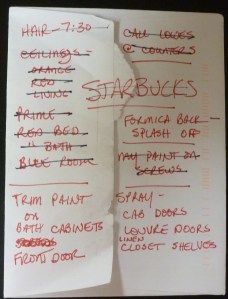 HAIR - 7:30
CEILINGS -
ORANGE
RED
LIVING
PRIME -
RED BED
" BATH
BLUE ROOM
TRIM PAINT
ON
BATH CABINETS
FRONT DOOR
CALL LOWES
@ COUNTERS
STARBUCKS
FORMICA BACK -
SPLASH OFF
MAY PAINT ON
SCREWS
SPRAY -
CAB DOORS
LOUVRE DOORS
LINEN
CLOSET SHELVES